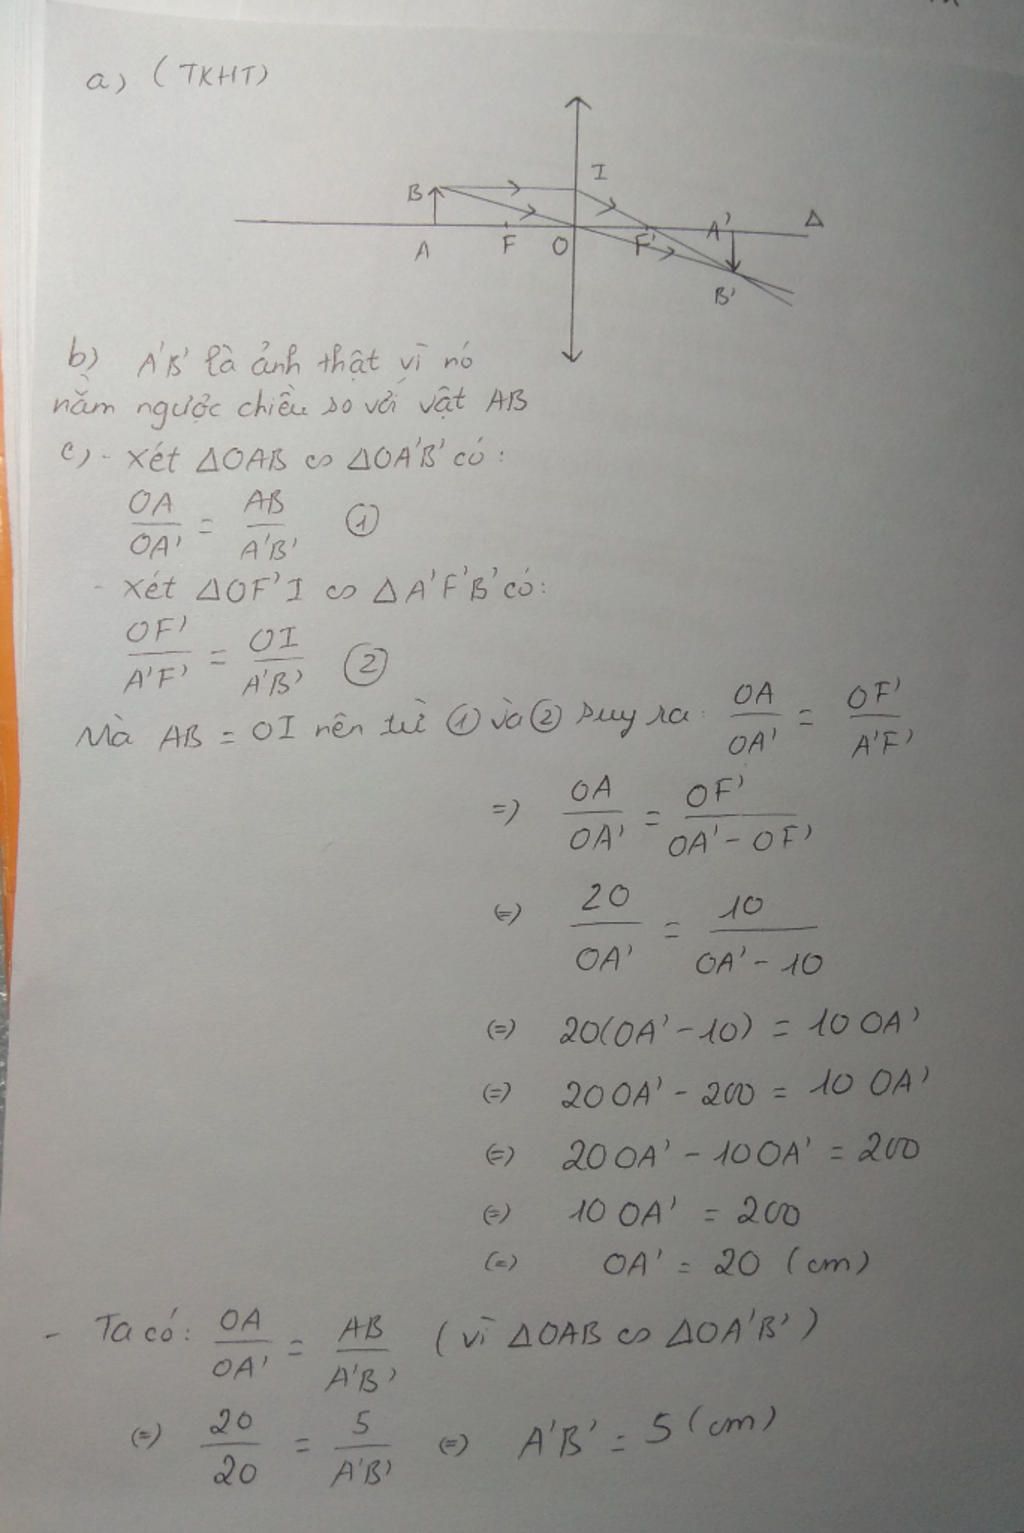 a) (TKHT)
I
B
A' Δ
A F O F'
B'
b) A'B' là ảnh thật vì nó
nằm ngược chiều so với vật AB
c) - Xét ΔOAB ∽ ΔOA'B' có:
OA/OA' = AB/A'B' ①
- Xét ΔOF'I ∽ ΔA'F'B' có:
OF'/A'F' = OI/A'B' ②
Mà AB = OI nên từ ① và ② suy ra: OA/OA' = OF'/A'F'
=> OA/OA' = OF'/OA' - OF'
<=> 20/OA' = 10/OA' - 10
<=> 20(OA' - 10) = 10 OA'
<=> 20 OA' - 200 = 10 OA'
<=> 20 OA' - 10 OA' = 200
<=> 10 OA' = 200
<=> OA' = 20 (cm)
- Ta có: OA/OA' = AB/A'B' (vì ΔOAB ∽ ΔOA'B')
<=> 20/20 = 5/A'B' <=> A'B' = 5 (cm)